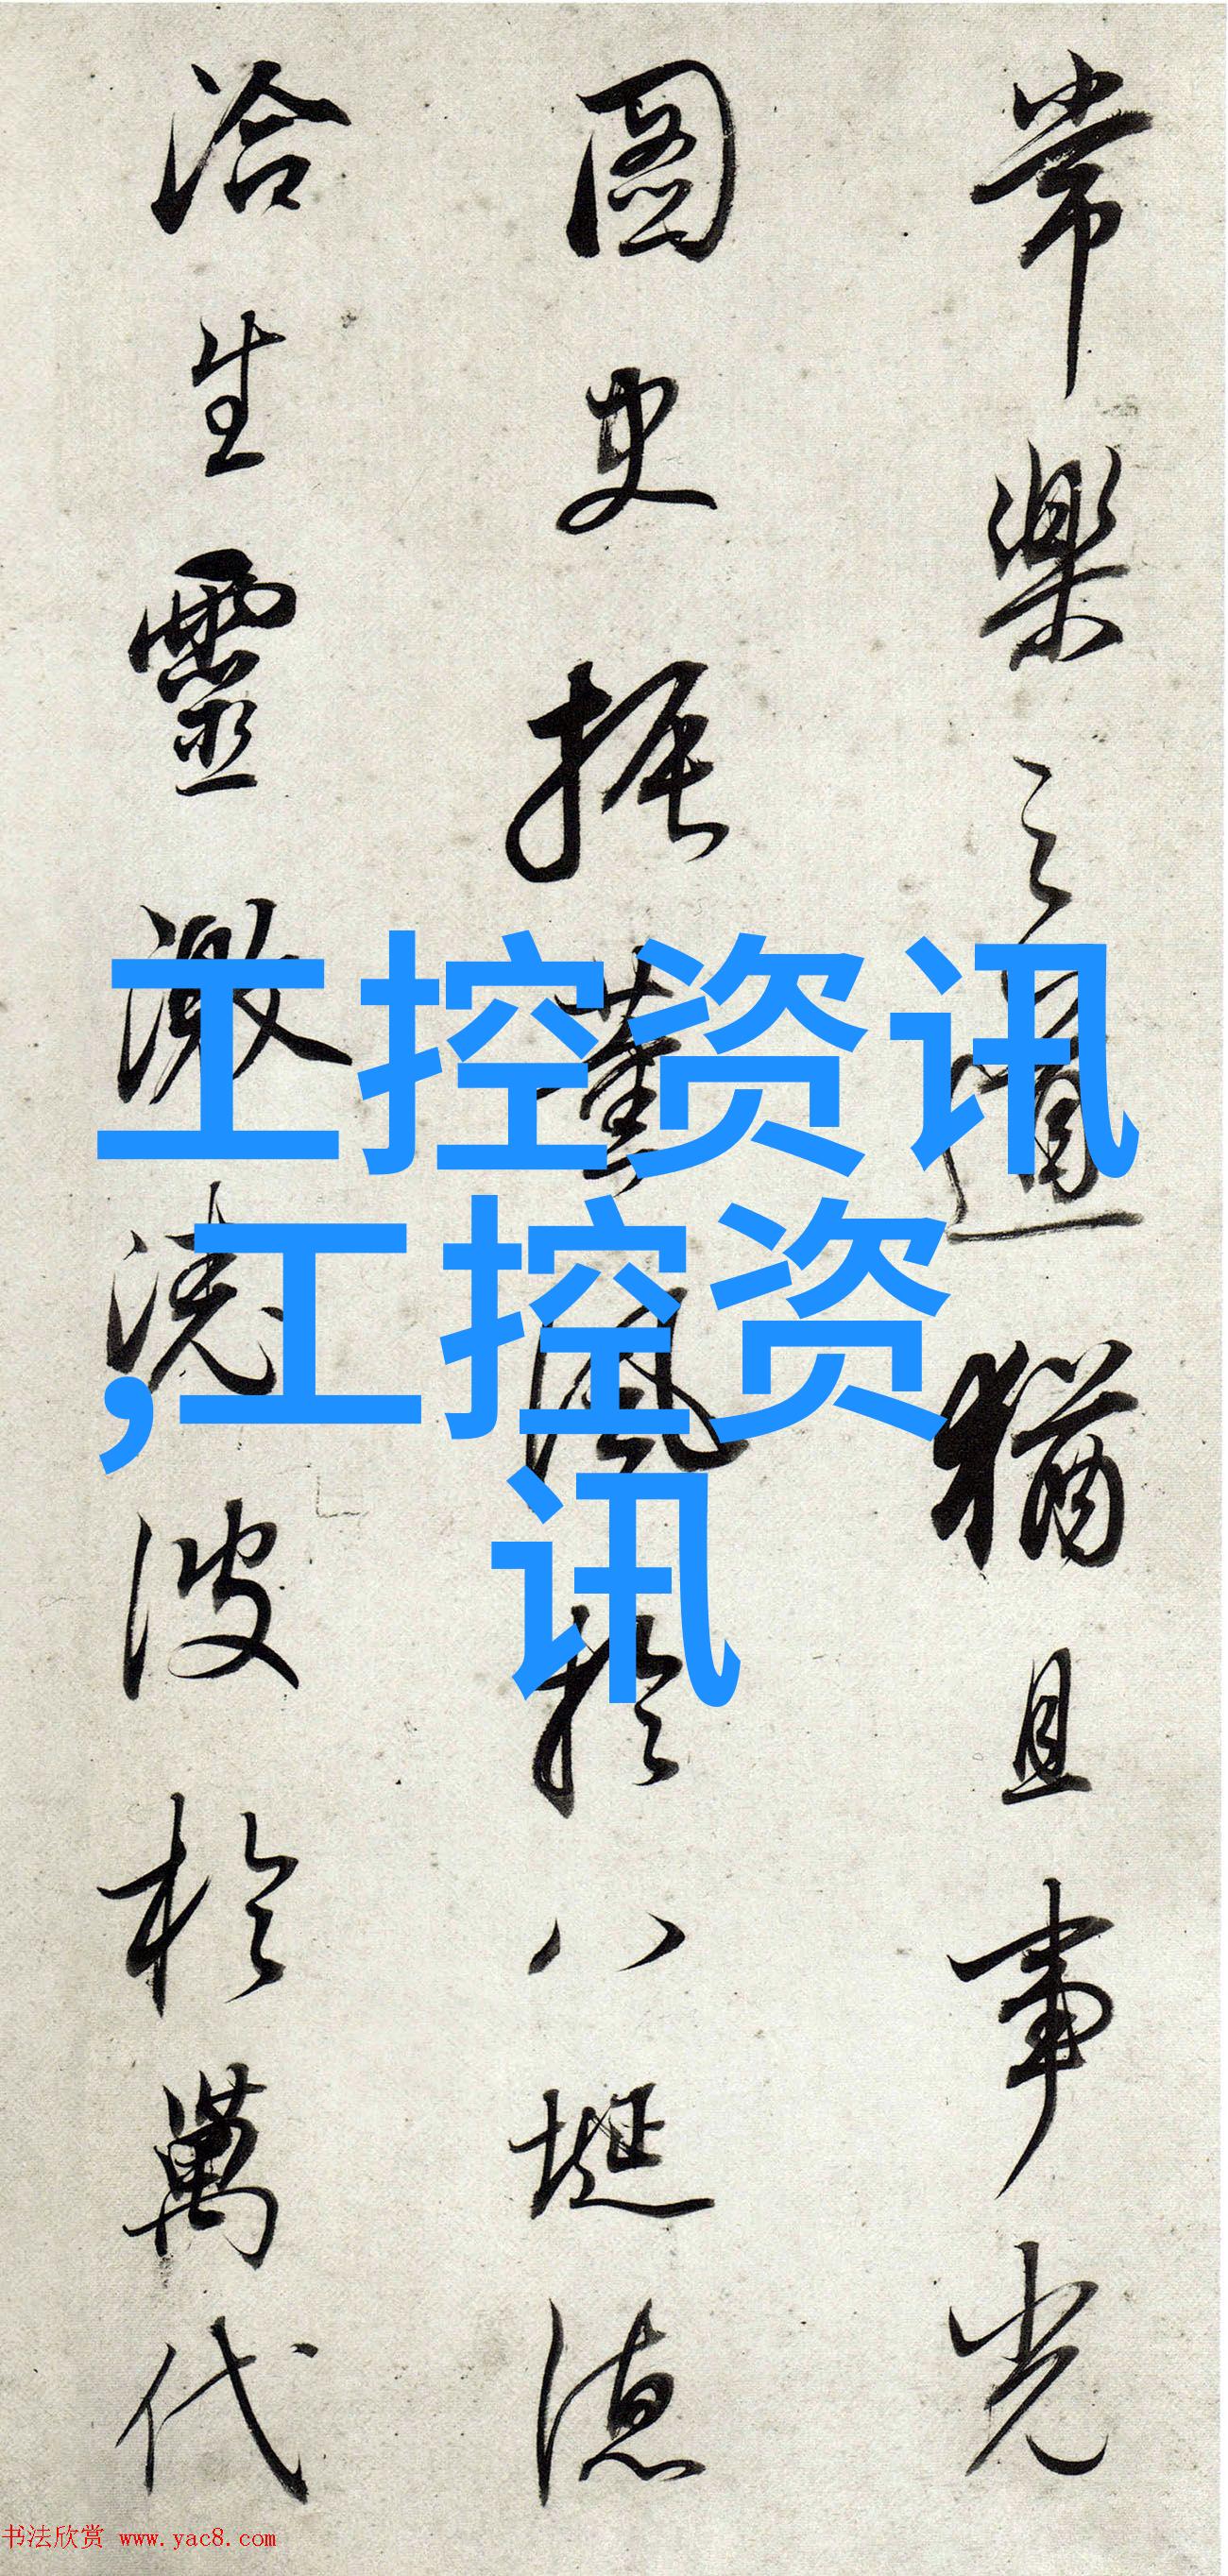 常樂之道猶且事光
圖史振薰風於八埏德
洽生靈激澆波於萬代
工控资讯
,工控资
讯
书法欣赏 www.yac8.com